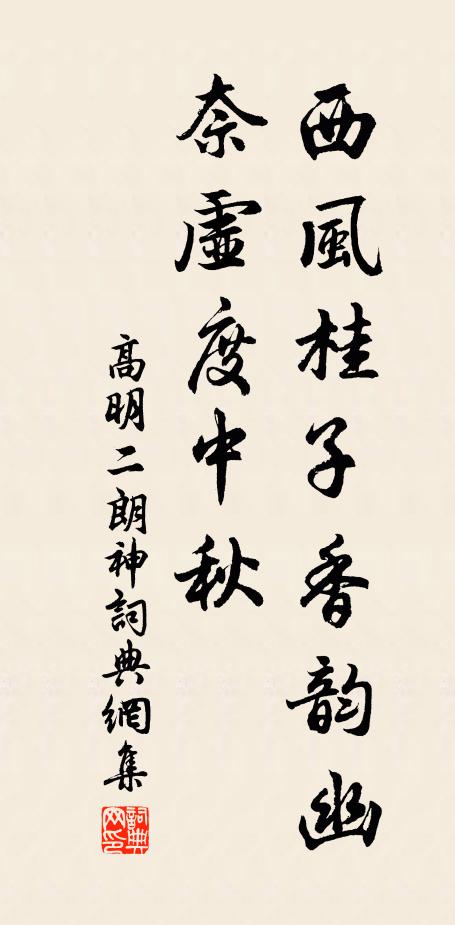 西風桂子香韵幽
奈虛度中秋
高明二朗神詞典網集
詞典网印